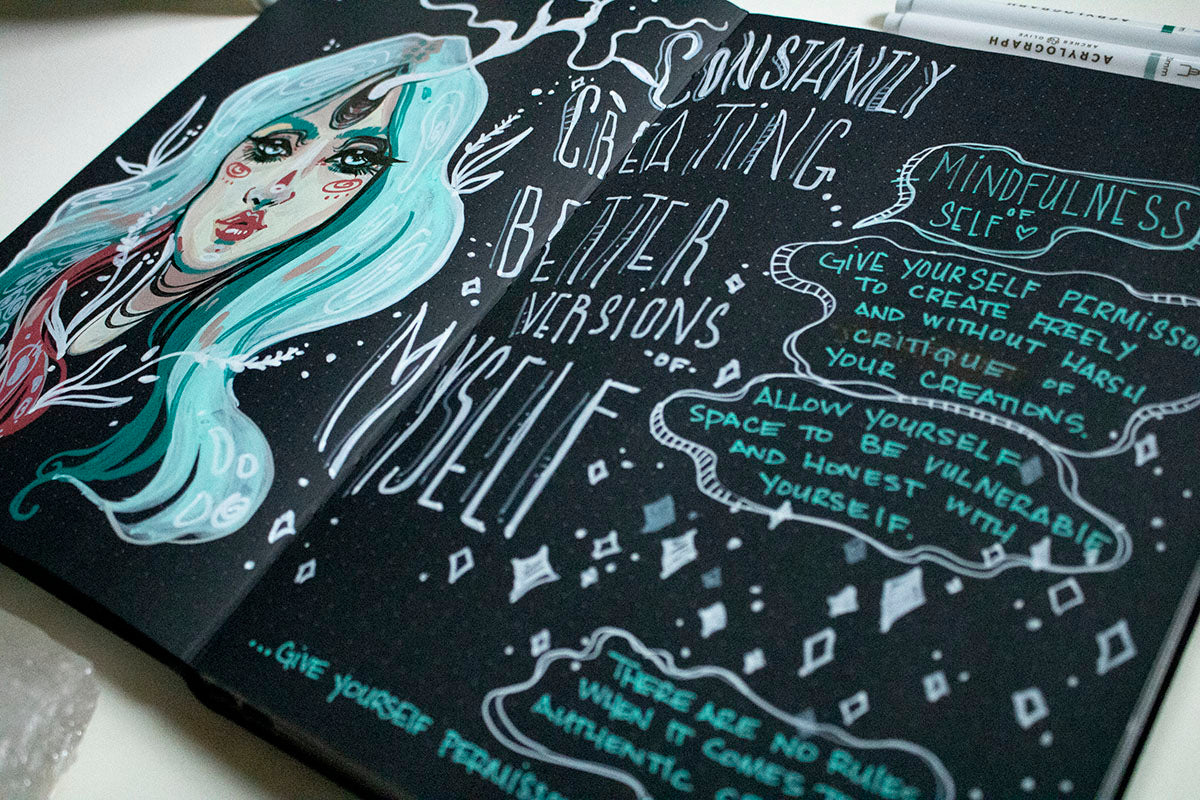 CONSTANTLY
CREATING
BETTER
VERSIONS
OF
MYSELF
MINDFULNESS
OF
SELF
GIVE YOURSELF PERMISSON
TO CREATE FREELY
AND WITHOUT HARSH
CRITIQUE OF
YOUR CREATIONS.
ALLOW YOURSELF
SPACE TO BE VULNERABLE
AND HONEST WITH
YOURSELF.
THERE ARE NO RULES
WHEN IT COMES
AUTHENTIC
...GIVE YOURSELF
ACRYLOGRAPH
ARCHER & OLIVE
ACRYLOGRAPH